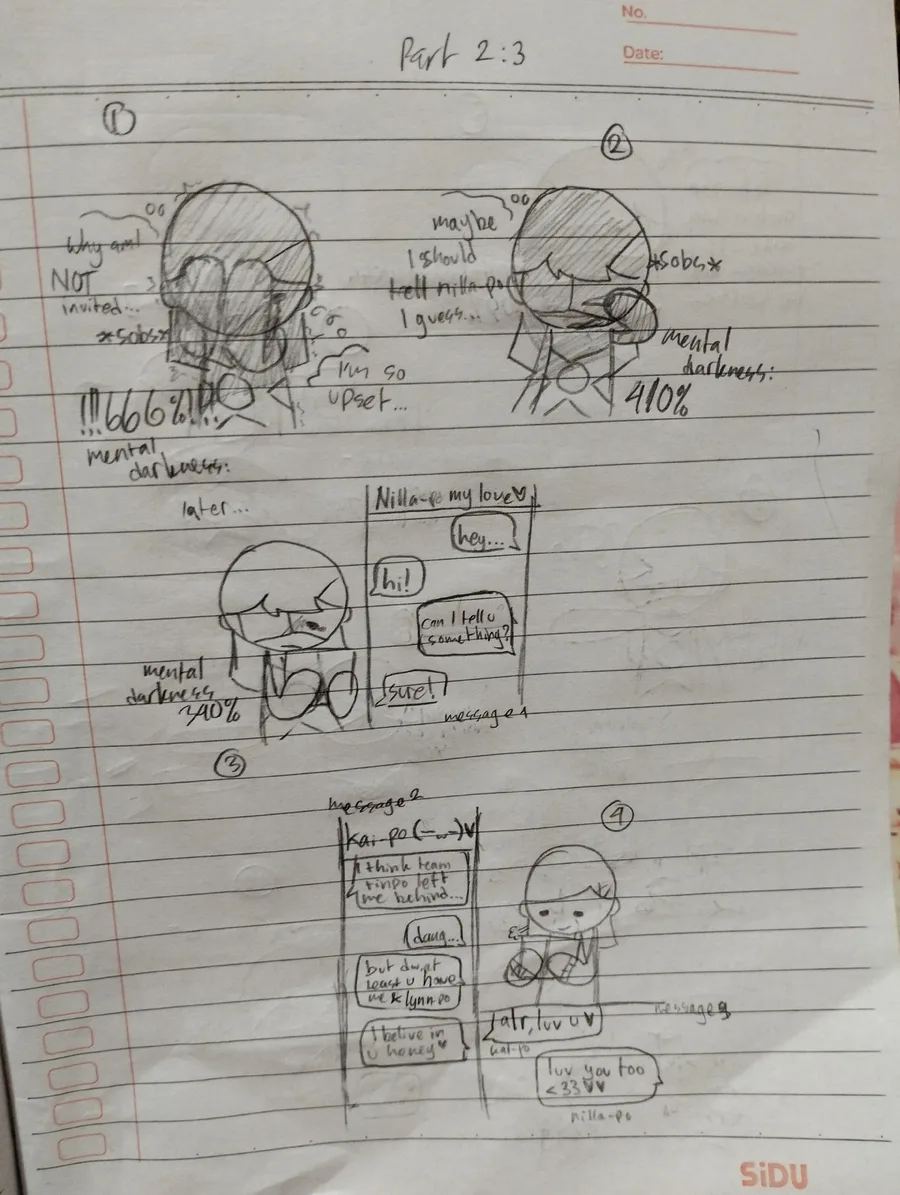 No.
Part 2:3
Date:
1
Why am I
NOT
invited...
*sobs*
!!!666%!!!
mental
darkness:
I'm so
upset...
2
maybe
I should
tell nilla-po
I guess...
*sobs*
mental
darkness:
410%
later...
mental
darkness
340%
3
Nilla-po my love♡
hey...
hi!
can I tell u
something?
sure!
message 1
message 2
kai-po (-_-)♥
I think team
rinpo left
me behind...
dang...
but dw, at
least u have
me & lynn-po
I belive in
u honey♥
4
message 3
alr, luv u♥
kai-po
luv you too
<33♥♥
nilla-po
SiDU